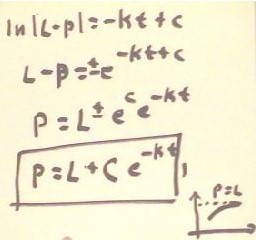 ln|L-p|=-kt+c
L-p=±e^{-kt+c}
P=L±e^c e^{-kt}
P=L+Ce^{-kt},
P=L